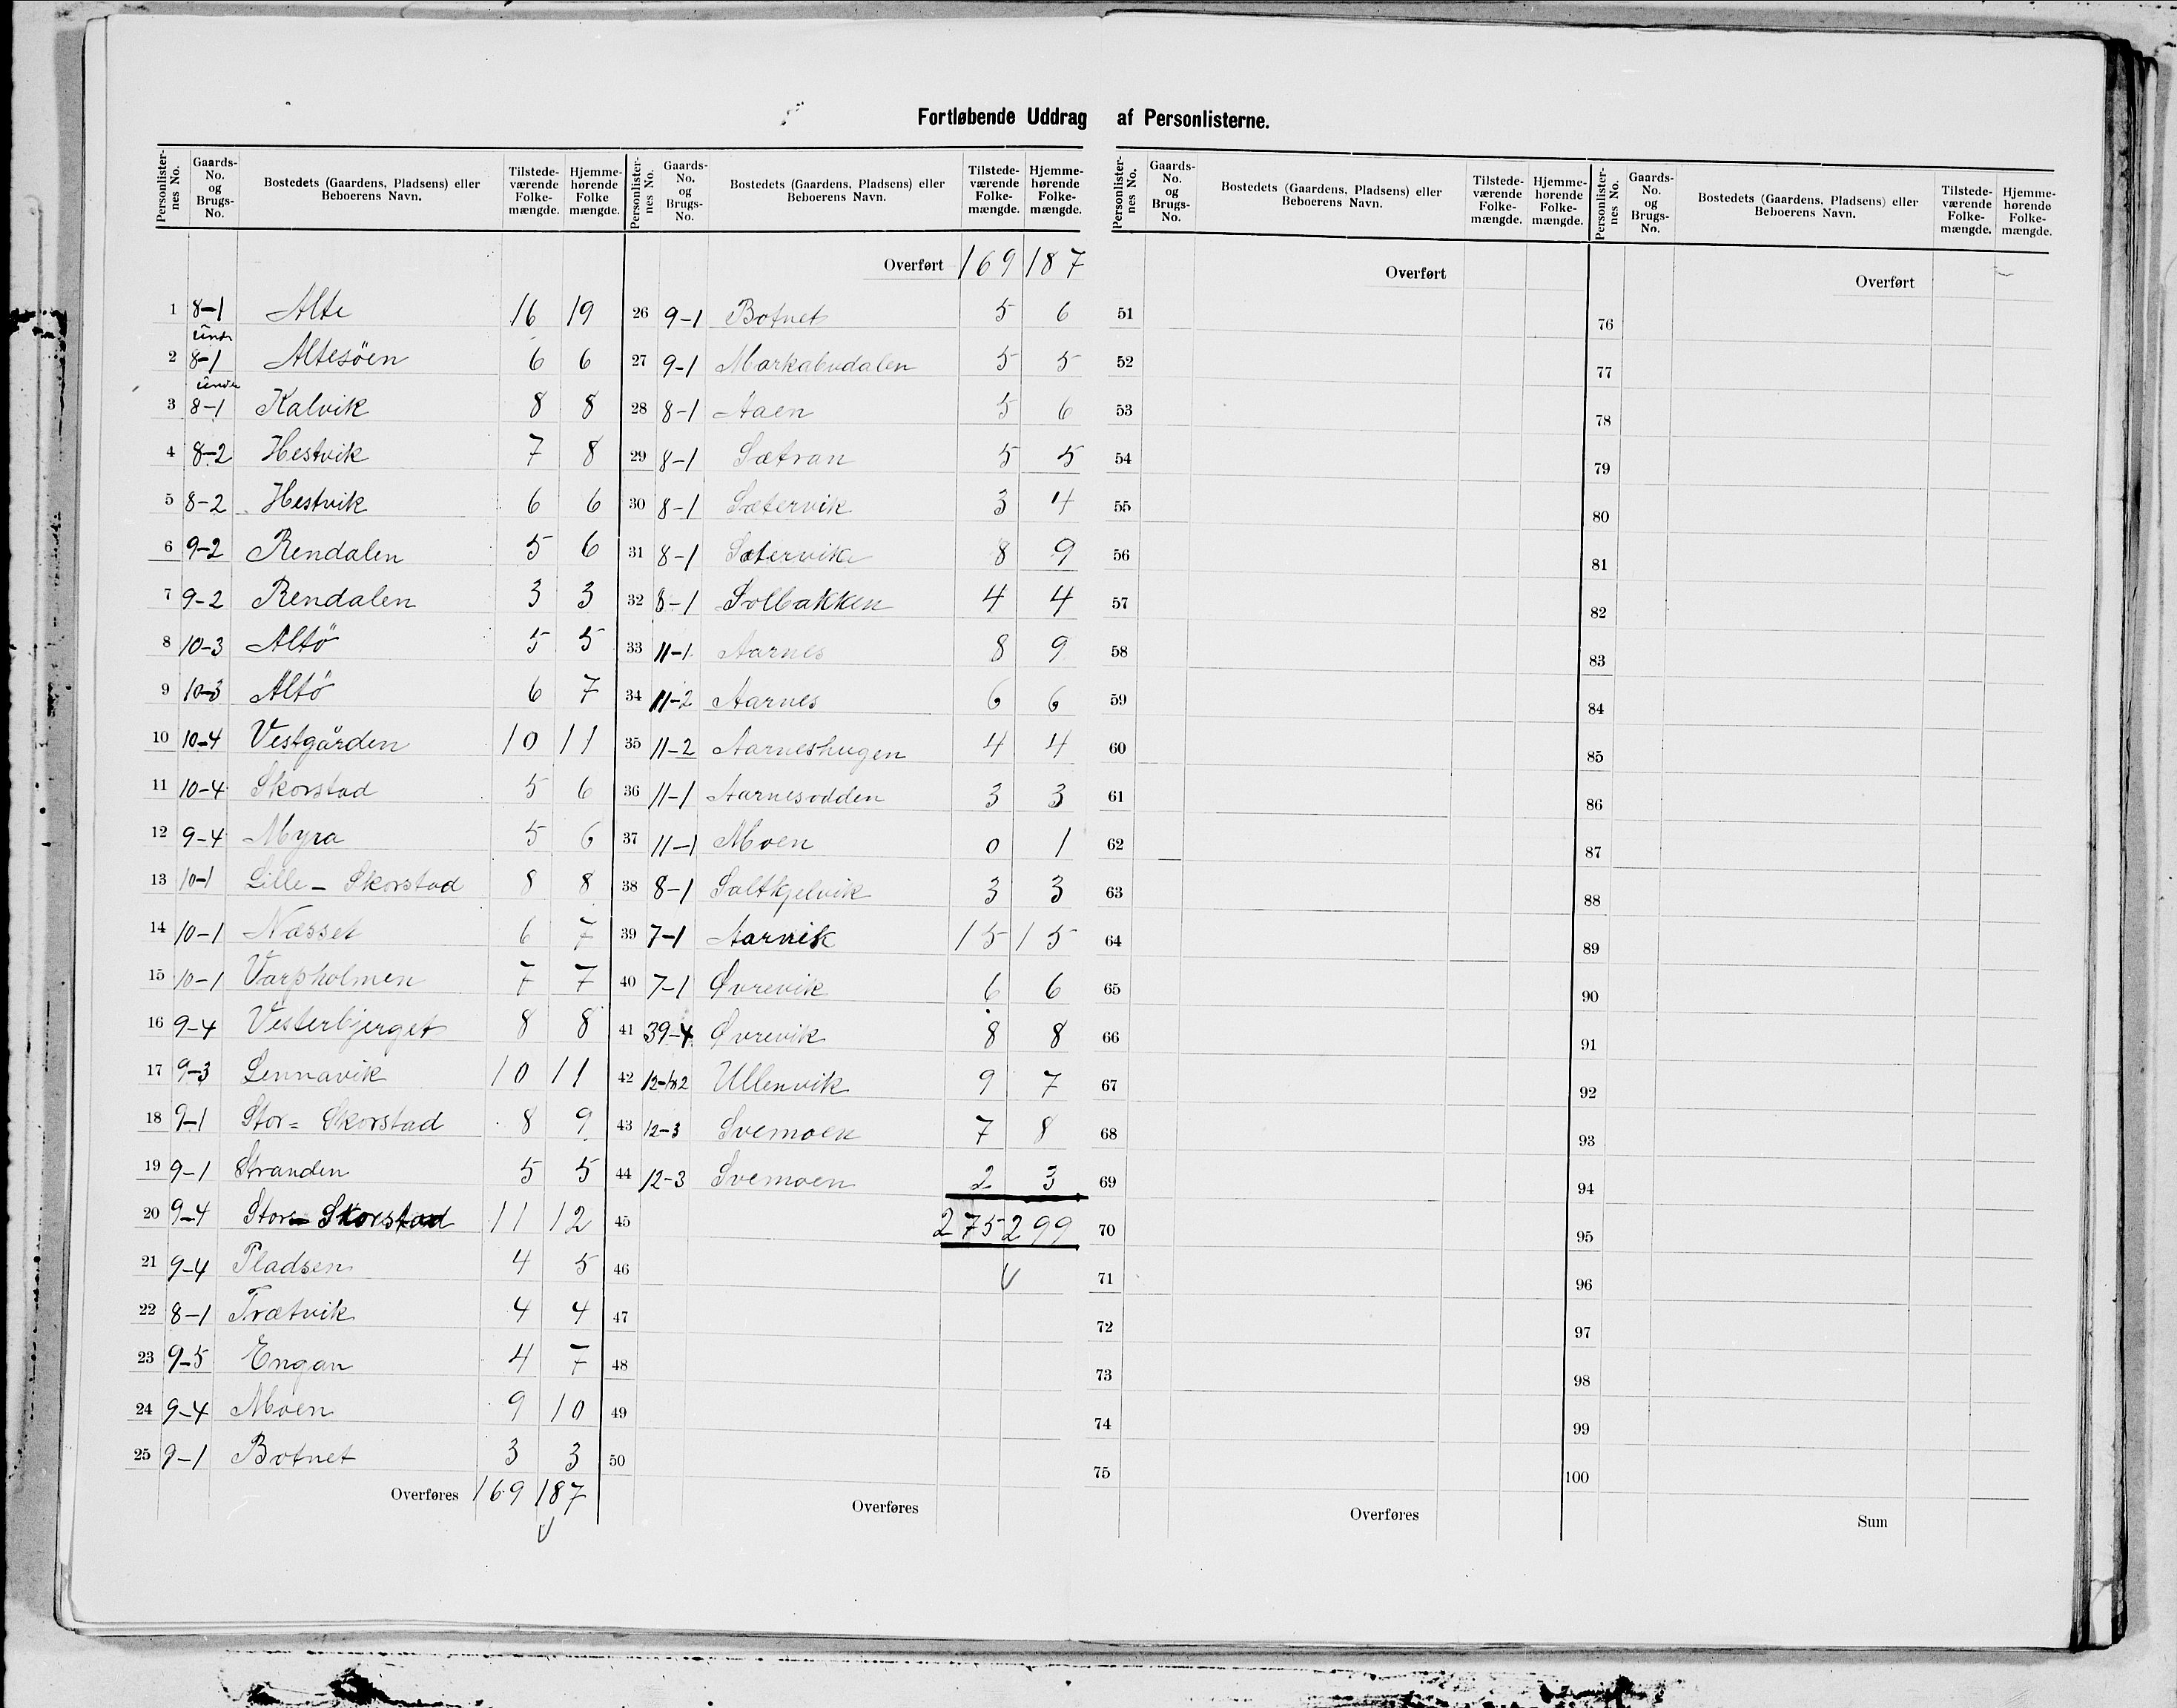 Fortløbende Uddrag af Personlisterne.
Personlisternes No. Gaards-No. og Brugs-No. Bostedets (Gaardens, Pladsens) eller Beboerens Navn. Tilstedeværende Folkemængde. Hjemmehørende Folke mængde.
1 8-1 Alte 16 19
2 under 8-1 Altesöen 6 6
3 under 8-1 Kalvik 8 8
4 8-2 Hestvik 7 8
5 8-2 Hestvik 6 6
6 9-2 Rendalen 5 6
7 9-2 Rendalen 3 3
8 10-3 Altö 5 5
9 10-3 Altö 6 7
10 10-4 Vestgården 10 11
11 10-4 Skorstad 5 6
12 9-4 Myra 5 6
13 10-1 Lille-Skorstad 8 8
14 10-1 Næsset 6 7
15 10-1 Varpholmen 7 7
16 9-4 Vesterbjerget 8 8
17 9-3 Lennavik 10 11
18 9-1 Stor=Skorstad 8 9
19 9-1 Stranden 5 5
20 9-4 Stor=Skorstad 11 12
21 9-4 Pladsen 4 5
22 8-1 Trætvik 4 4
23 9-5 Engan 4 7
24 9-4 Moen 9 10
25 9-1 Botnet 3 3
Overføres 169 187
Personlisternes No. Gaards-No. og Brugs-No. Bostedets (Gaardens, Pladsens) eller Beboerens Navn. Tilstedeværende Folkemængde. Hjemmehørende Folkemængde.
Overført 169 187
26 9-1 Botnet 5 6
27 9-1 Markabudalen 5 5
28 8-1 Aaen 5 6
29 8-1 Sætran 5 5
30 8-1 Sætervik 3 4
31 8-1 Sætervik 8 9
32 8-1 Solbakken 4 4
33 11-1 Aarnes 8 9
34 11-2 Aarnes 6 6
35 11-2 Aarneshugen 4 4
36 11-1 Aarnesodden 3 3
37 11-1 Moen 0 1
38 8-1 Saltkjelvik 3 3
39 7-1 Aarvik 15 15
40 7-1 Øvrevik 6 6
41 39-4 Øvrevik 8 8
42 Ullenvik 9 7
43 12-3 Svemoen 7 8
44 12-3 Svemoen 2 3
45 275 299
46
47
48
49
50
Overføres
Personlisternes No. Gaards-No. og Brugs-No. Bostedets (Gaardens, Pladsens) eller Beboerens Navn. Tilstedeværende Folkemængde. Hjemmehørende Folkemængde.
Overført
51
52
53
54
55
56
57
58
59
60
61
62
63
64
65
66
67
68
69
70
71
72
73
74
75
Overføres
Personlisternes No. Gaards-No. og Brugs-No. Bostedets (Gaardens, Pladsens) eller Beboerens Navn. Tilstedeværende Folkemængde. Hjemmehørende Folkemængde.
Overført
76
77
78
79
80
81
82
83
84
85
86
87
88
89
90
91
92
93
94
95
96
97
98
99
100
Sum